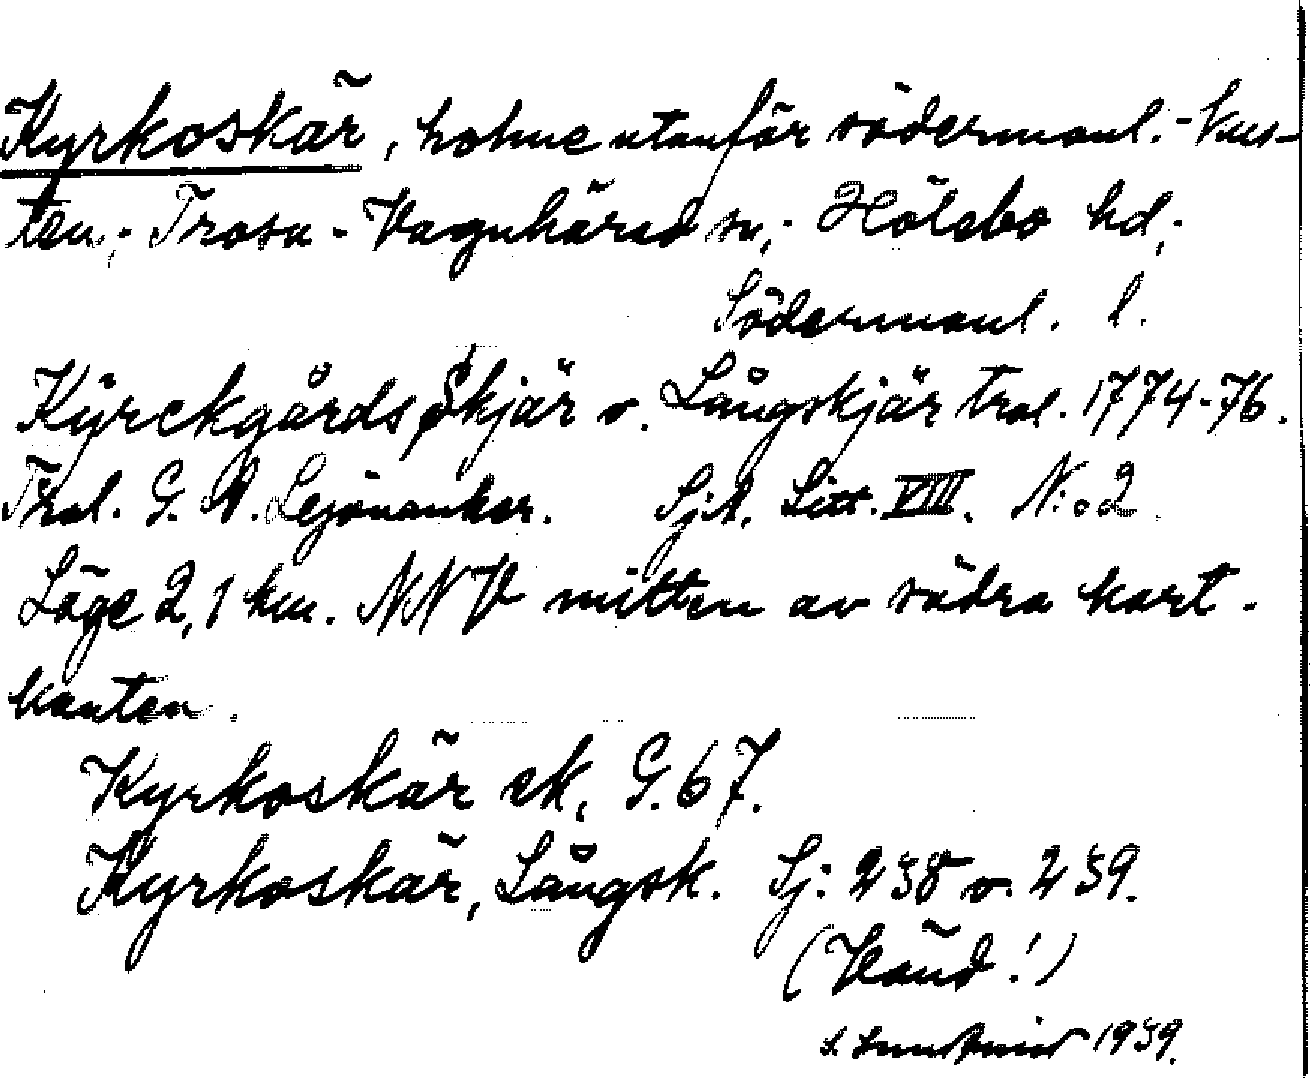 Kyrkoskär, holme utanför södermanl. - kus-
ten, - Trosa - Vagnhärad sn, - Hölebo hd, -
Södermanl. l.
Kÿrckgårds Skjär v. Långskjär tral. 1774-76.
Thal. G. A. Lejonanker. SjA. Litt. VIII. N:o 2
Läge 2,1 km. NNV mitten av södra kart-
kanten.
Kyrkoskär ek, G. 67.
Kyrkoskär, Långsk. Sj: 238 o. 239.
(Händ!)
1939.